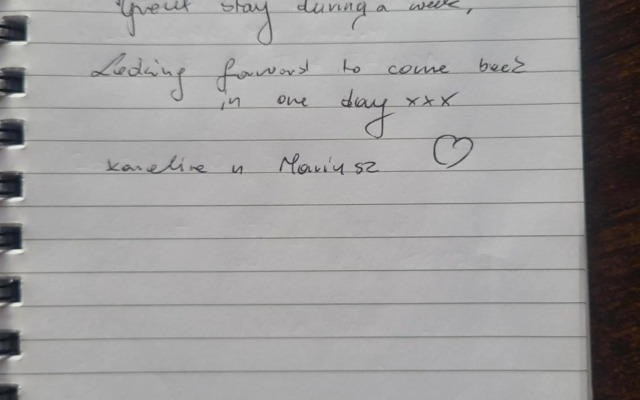 Great stay during a week,
Looking forward to come back
in one day xxx
Karolina n Mariusz ♡